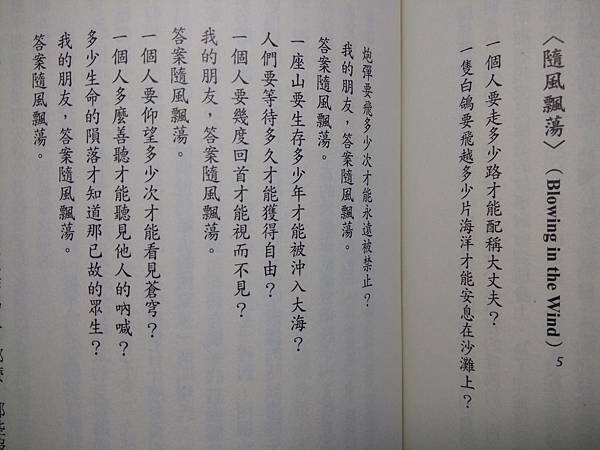 〈隨風飄蕩〉（Blowing in the Wind）5
一個人要走多少路才能配稱大丈夫？
一隻白鴿要飛越多少片海洋才能安息在沙灘上？
炮彈要飛多少次才能永遠被禁止？
我的朋友，答案隨風飄蕩。
答案隨風飄蕩。
一座山要生存多少年才能被沖入大海？
人們要等待多久才能獲得自由？
一個人要幾度回首才能視而不見？
我的朋友，答案隨風飄蕩。
答案隨風飄蕩。
一個人要仰望多少次才能看見蒼穹？
一個人多麼善聽才能聽見他人的吶喊？
多少生命的隕落才知道那已故的眾生？
我的朋友，答案隨風飄蕩。
答案隨風飄蕩。